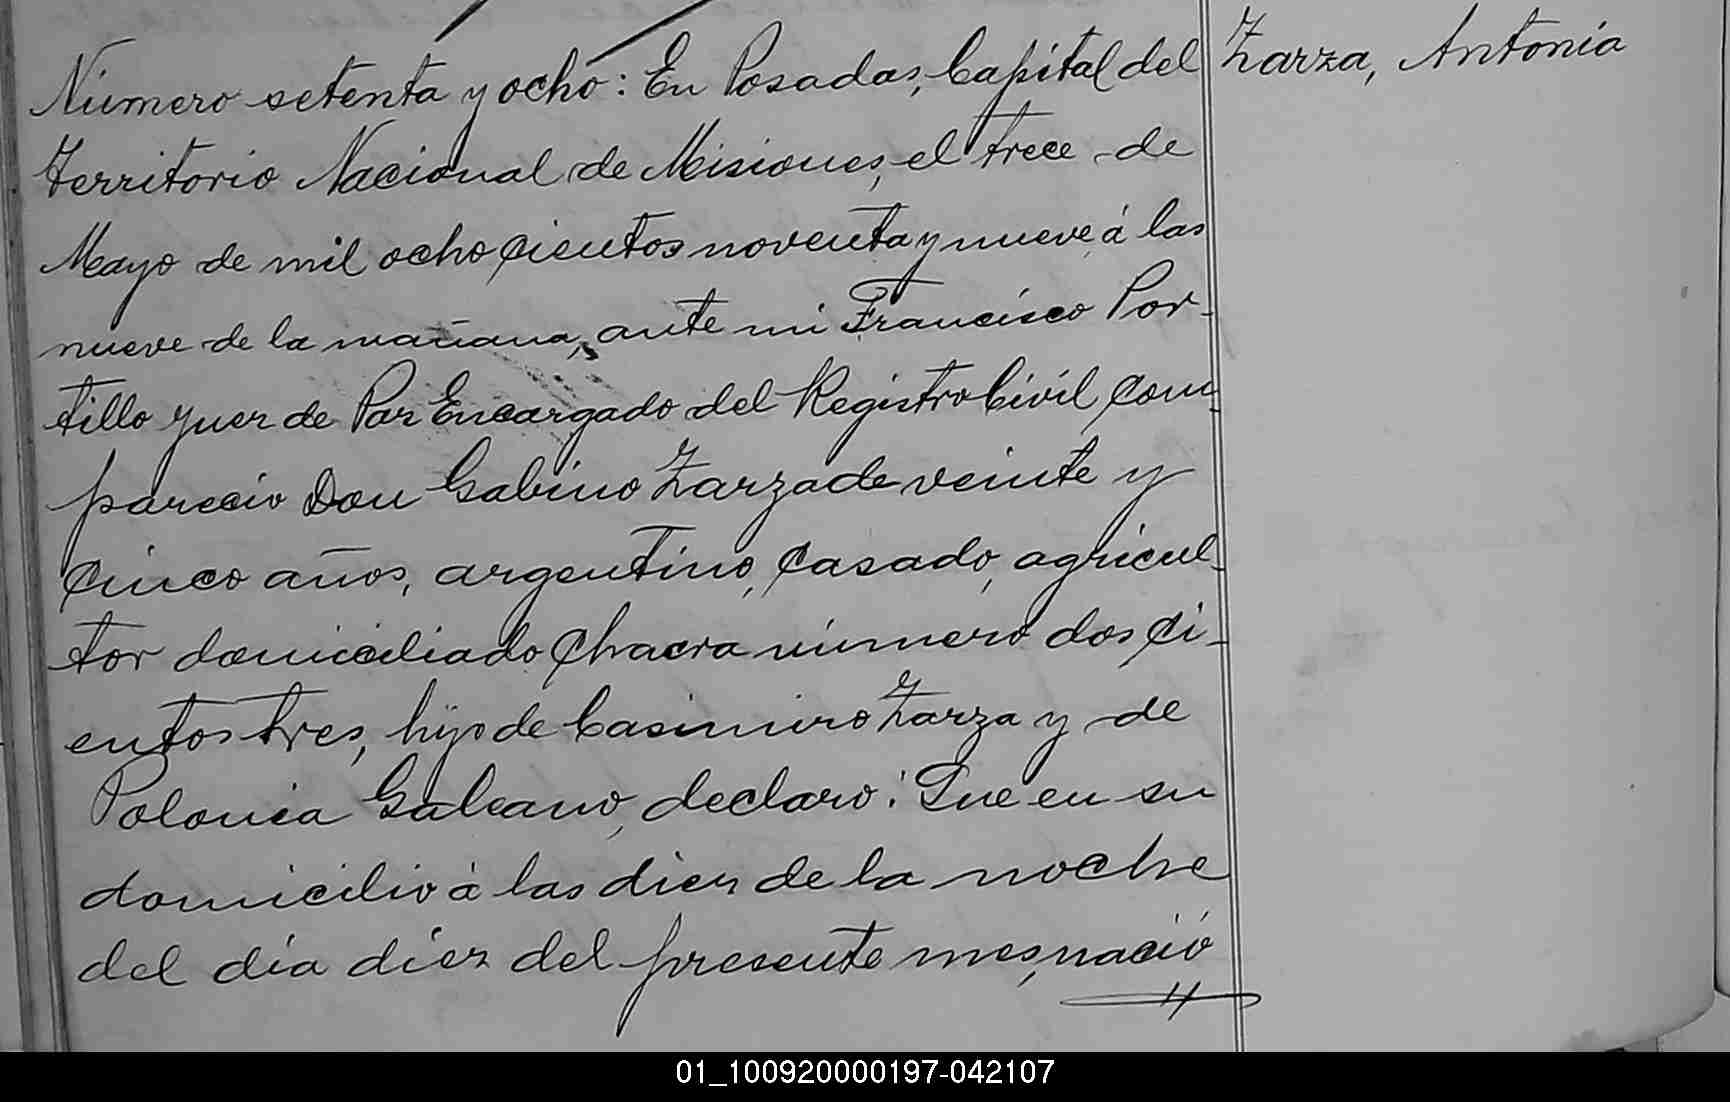 Número setenta y ocho: En Posadas, Capital del
Zarza, Antonia
Territorio Nacional de Misiones, el trece de
Mayo de mil ocho cientos noventa y nueve á las
nueve de la mañana, ante mi Francisco Por-
tillo Juez de Paz Encargado del Registro Civil, com-
pareció Don Gabino Zarza de veinte y
cinco años, argentino, casado, agricul-
tor domiciliado Chacra número dos ci-
entos tres, hijo de Casimiro Zarza y de
Polonia Galeano, declaró: Que en su
domicilio á las diez de la noche
del día diez del presente mes, nació
01_100920000197-042107